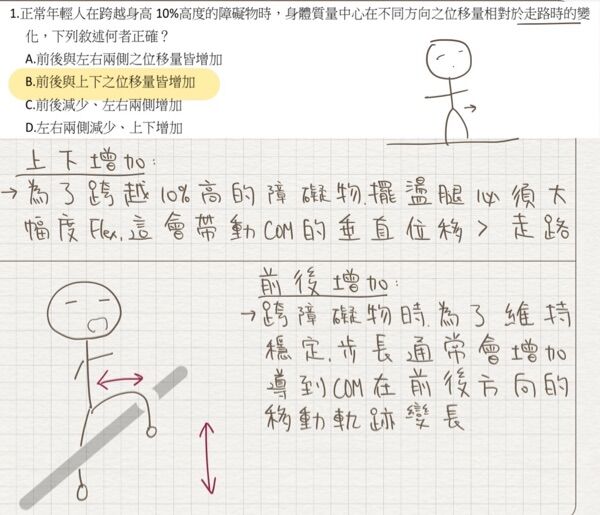 1.正常年輕人在跨越身高 10%高度的障礙物時，身體質量中心在不同方向之位移量相對於走路時的變
化，下列敘述何者正確？
A.前後與左右兩側之位移量皆增加
B.前後與上下之位移量皆增加
C.前後減少、左右兩側增加
D.左右兩側減少、上下增加
上下增加：
→為了跨越10%高的障礙物.擺盪腿必須大
幅度Flex,這會帶動COM的垂直位移＞走路
前後增加：
→跨障礙物時,為了維持
穩定.步長通常會增加
導到COM在前後方向的
移動軌跡變長